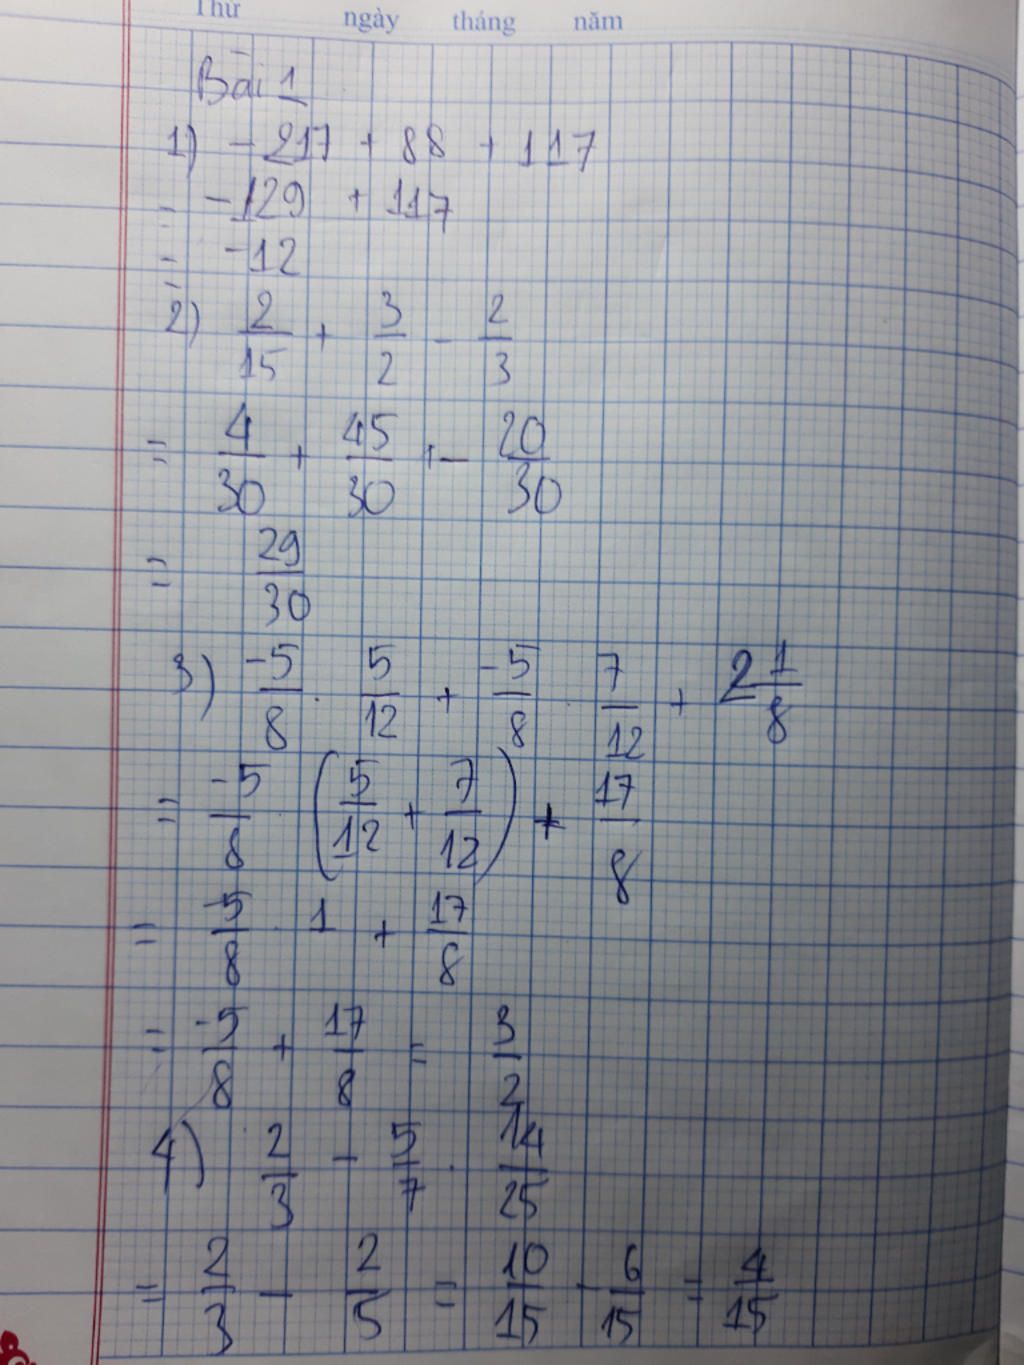 Thứ ngày tháng năm
Bài 1
1) -217 + 88 + 117
= -129 + 117
= -12
2) 2/15 + 3/2 - 2/3
= 4/30 + 45/30 + - 20/30
= 29/30
3) -5/8 . 5/12 + -5/8 . 7/12 + 2 1/8
= -5/8 (5/12 + 7/12) + 17/8
= -5/8 . 1 + 17/8
= -5/8 + 17/8 = 3/2
4) 2/3 - 5/7 . 14/25
= 2/3 - 2/5 = 10/15 - 6/15 = 4/15